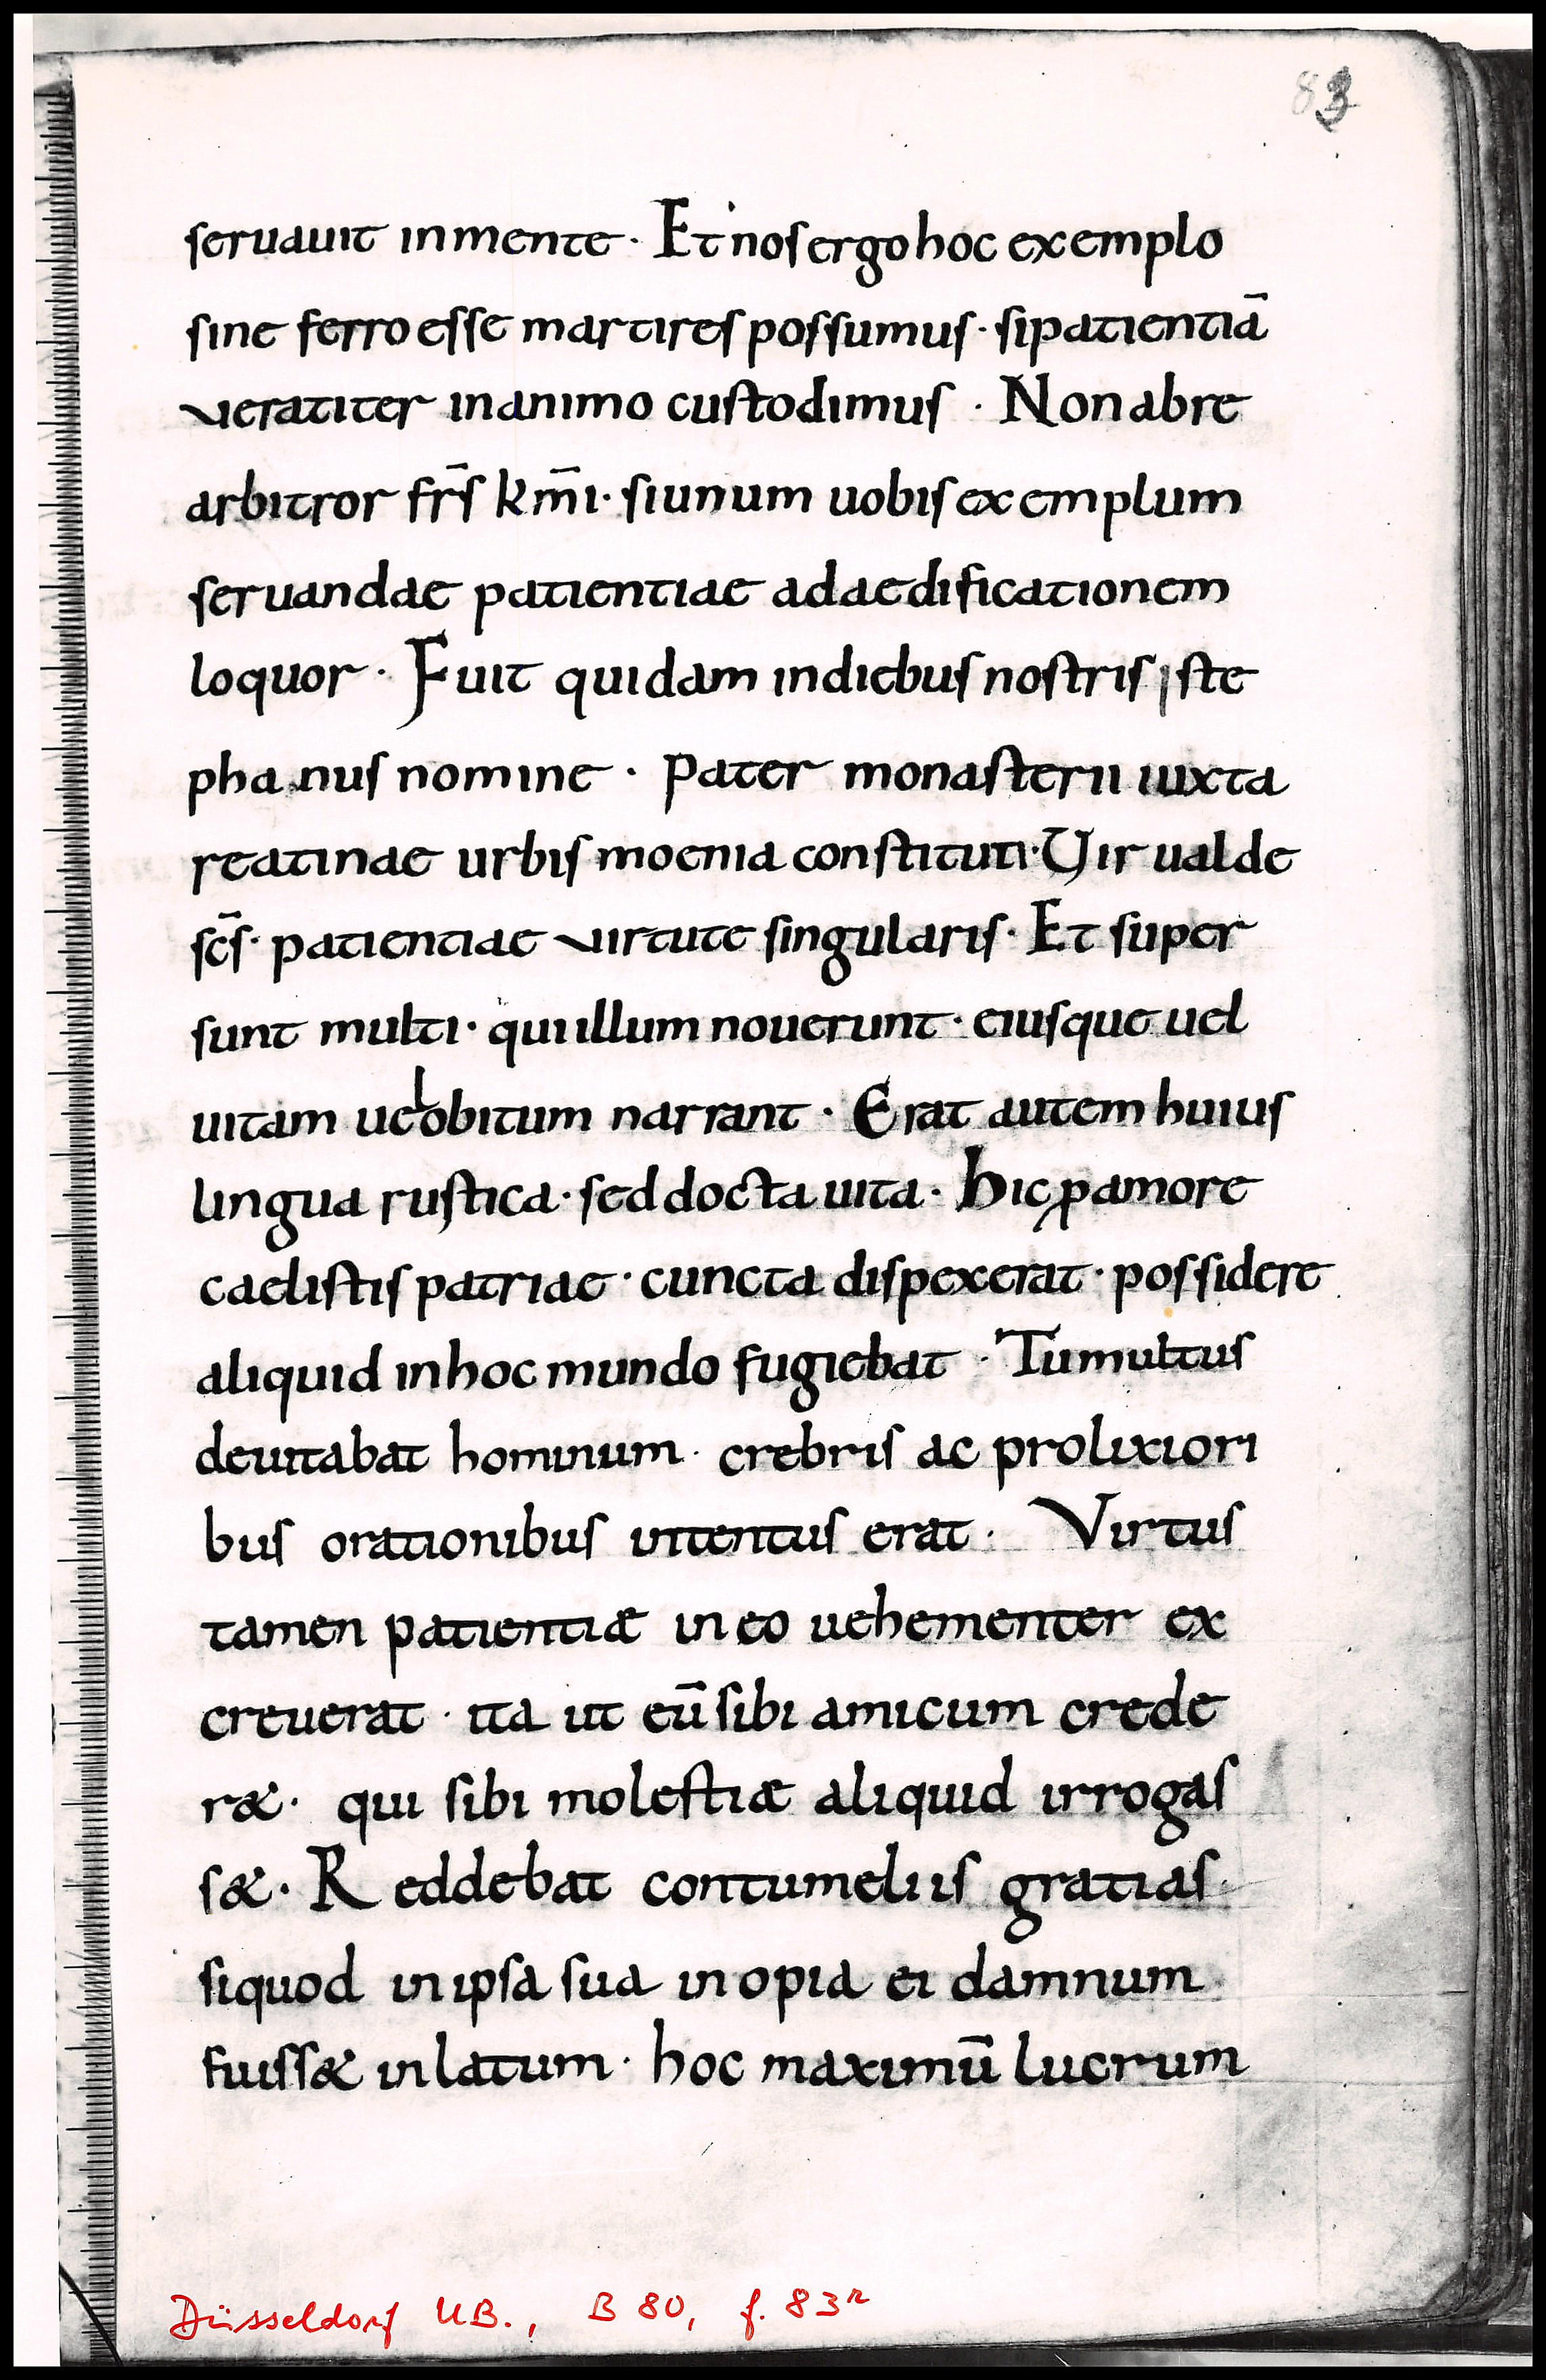 83
seruauit inmente · Et nos ergo hoc exemplo
sine ferro esse martires possumus · si patientiā
veraciter in animo custodimus · Non abre
arbitror fr̄s km̄i · si unum uobis exemplum
seruandae patientiae ad aedificationem
loquor · Fuit quidam in diebus nostris ste
phanus nomine · pater monasterii iuxta
reatinae urbis moenia constituti · Uir ualde
sc̄s · patientiae virtute singularis · Et super
sunt multi · qui illum nouerunt · eiusque uel
uitam uel obitum narrant · Erat autem huius
lingua rustica · sed docta uita · hic ꝓ amore
caelistis patriae · cuncta dispexerat · possidere
aliquid in hoc mundo fugiebat · Tumultus
deuitabat hominum · crebris ac prolixiori
bus orationibus intentus erat · Virtus
tamen patientiæ in eo uehementer ex
creuerat · ita ut eū sibi amicum crede
r& · qui sibi molestiæ aliquid irrogas
s& · Reddebat contumeliis gratias ·
si quod in ipsa sua inopia ei damnum
fuiss& inlatum · hoc maximū lucrum
Düsseldorf UB., B 80, f. 83r